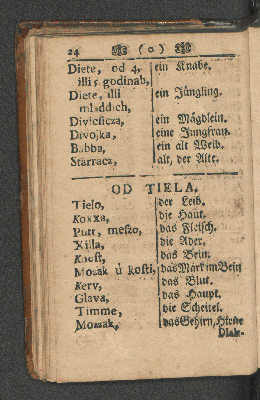 24 ( o )
Diete, od 4, ein Knabe.
illi 5 godinah,
Diete, illi ein Jüngling.
mladdich,
Divicficza, ein Mägdlein.
Divojka, eine Jungfrau.
Babba, ein alt Weib.
Starracz, alt, der Alte.
OD TIELA.
Tielo, der Leib.
Koxxa, die Haut.
Putt, meszo, das Fleisch.
Xilla, die Ader.
Koost, das Bein.
Mozak ù kosti, das Mark im Bein
Kerv, das Blut.
Glava, das Haupt.
Timme, die Scheitel.
Mozzak, das Gehirn, Hirne
Dlak-